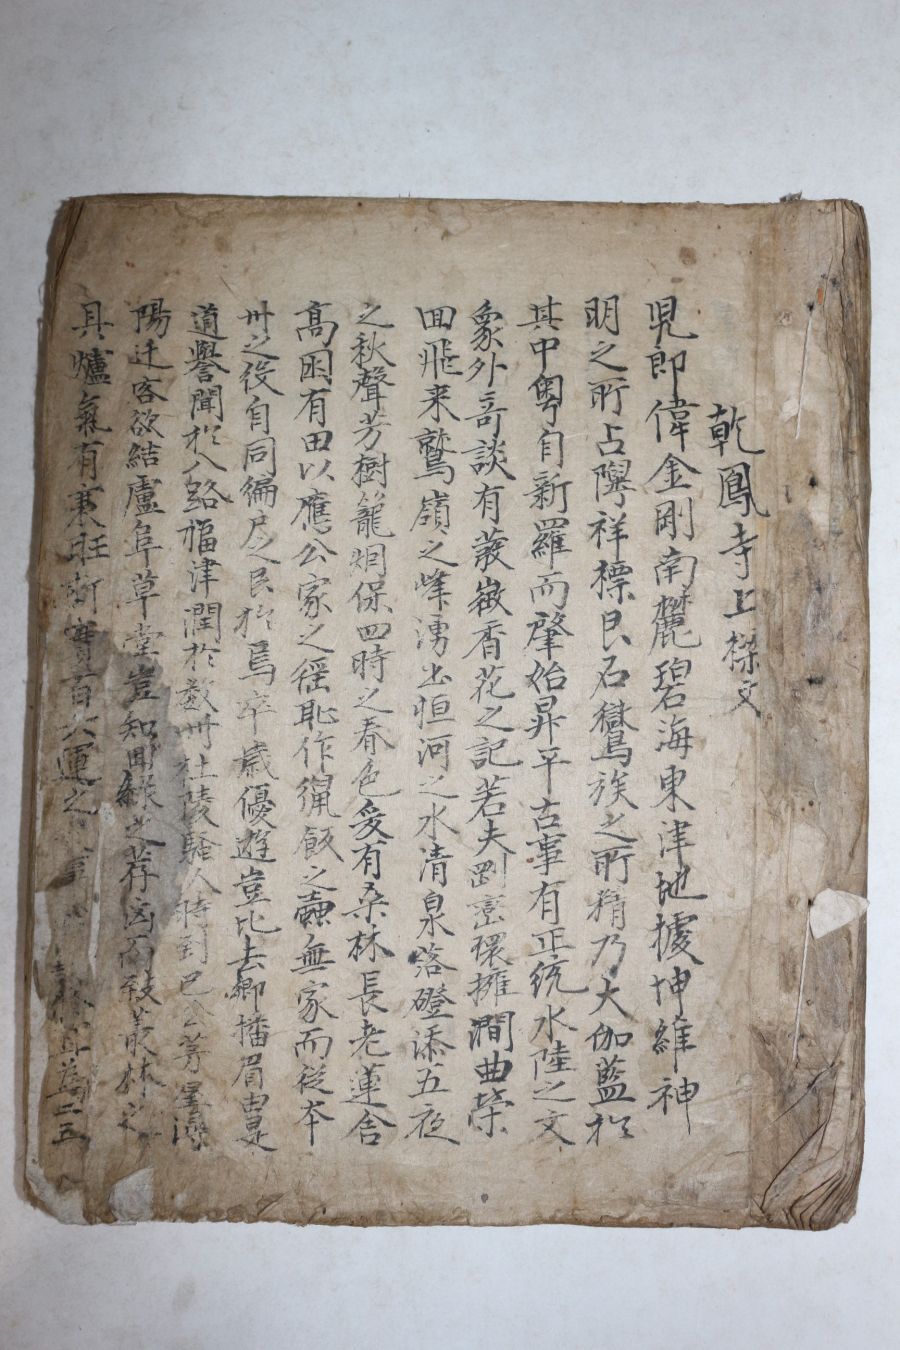 乾鳳寺上樑文
児郎偉金剛南麓碧海東津地據坤維神
明之所占隩祥標艮石鸞族之所精乃大伽藍於
其中粤自新羅而肇始昇平古事有正統水陸之文
象外奇談有叢嶽香花之記若夫割巒環擁澗曲縈
回飛来鷲嶺之峰湧出恒河之水清泉落磴添五夜
之秋聲芳樹籠烟保四時之春色爰有桑林長老蓮舎
高困有田以應公家之徭恥作獨飯之蠹無家而從本
卅之役自同編戶之民於焉卒歲優遊豈比去鄉播眉由是
道譽聞於八路福津潤於數州杜陵騷人時到巴公等
陽迁客欲結廬阜草堂豈知之荐而致叢林之
具爐氣有衰旺百六運之